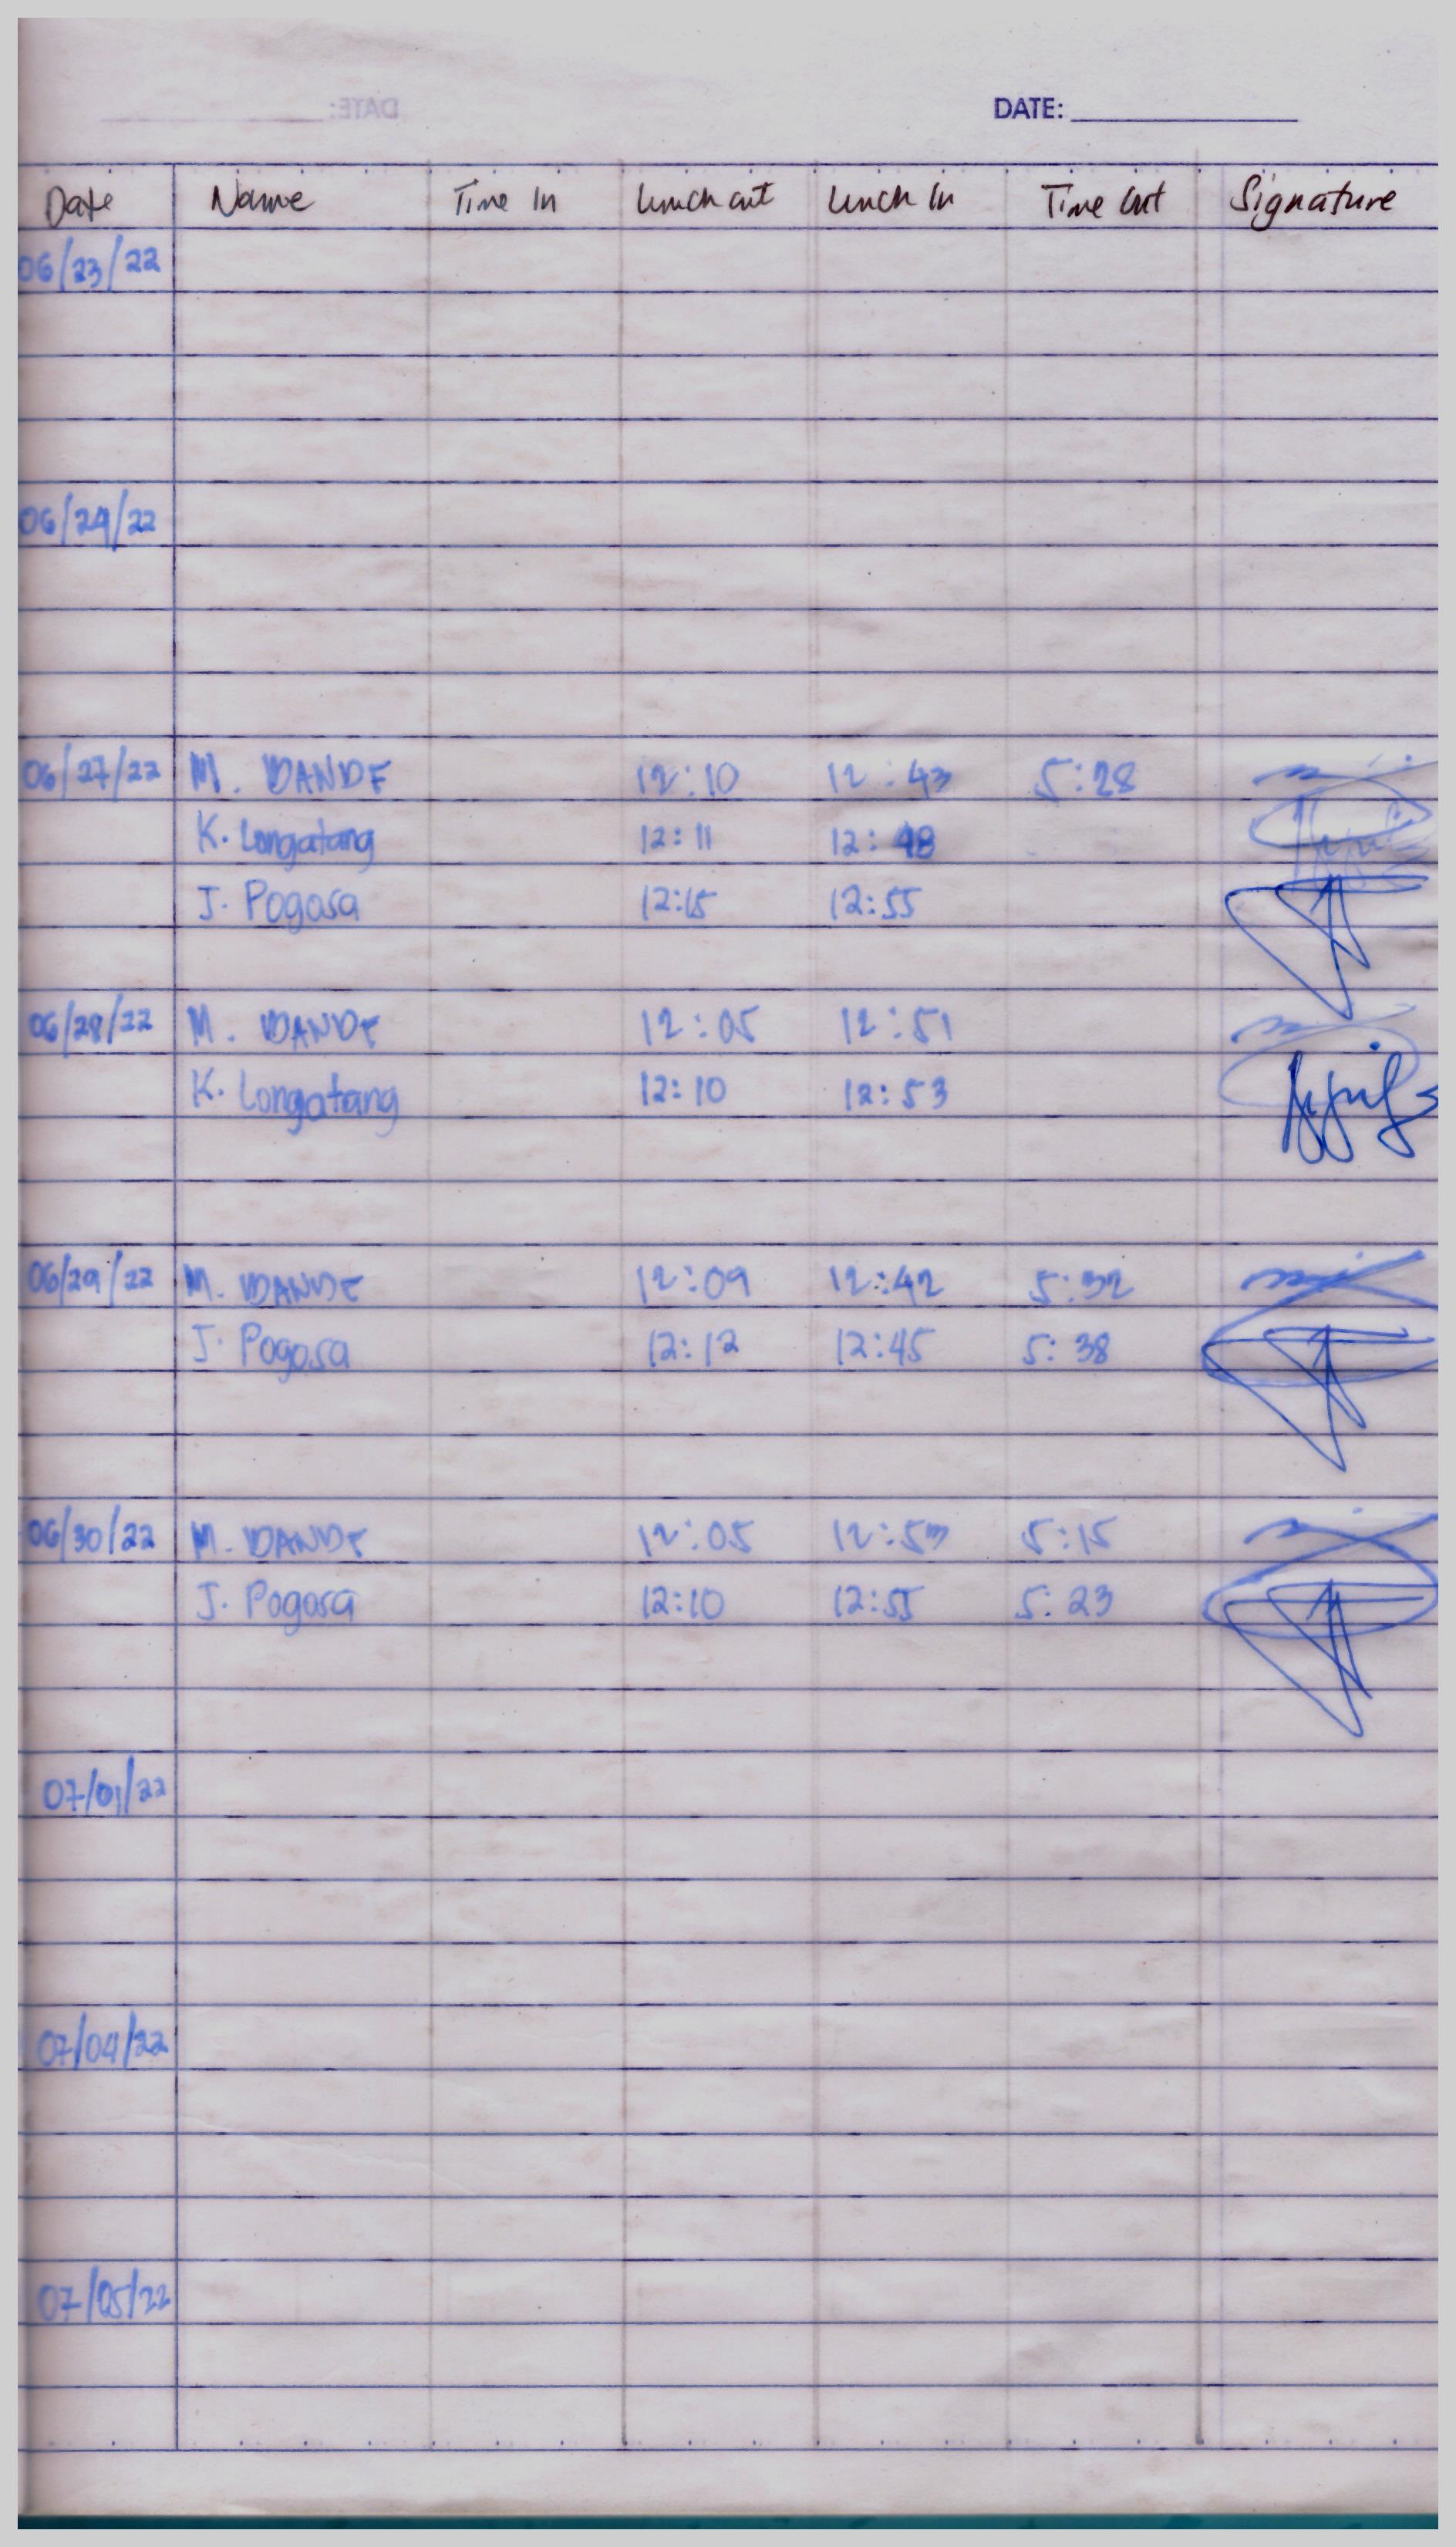 DATE:
Date Name Time In Lunch out Lunch In Time Out Signature
06/23/22
06/24/22
06/27/22 M. DANDE 12:10 12:43 5:28
K. Longatang 12:11 12:48
J. Pogosa 12:15 12:55
06/28/22 M. DANDE 12:05 12:51
K. Longatang 12:10 12:53
06/29/22 M. DANDE 12:09 12:42 5:32
J. Pogosa 12:12 12:45 5:38
06/30/22 M. DANDE 12:05 12:53 5:15
J. Pogosa 12:10 12:55 5:23
07/01/22
07/04/22
07/05/22